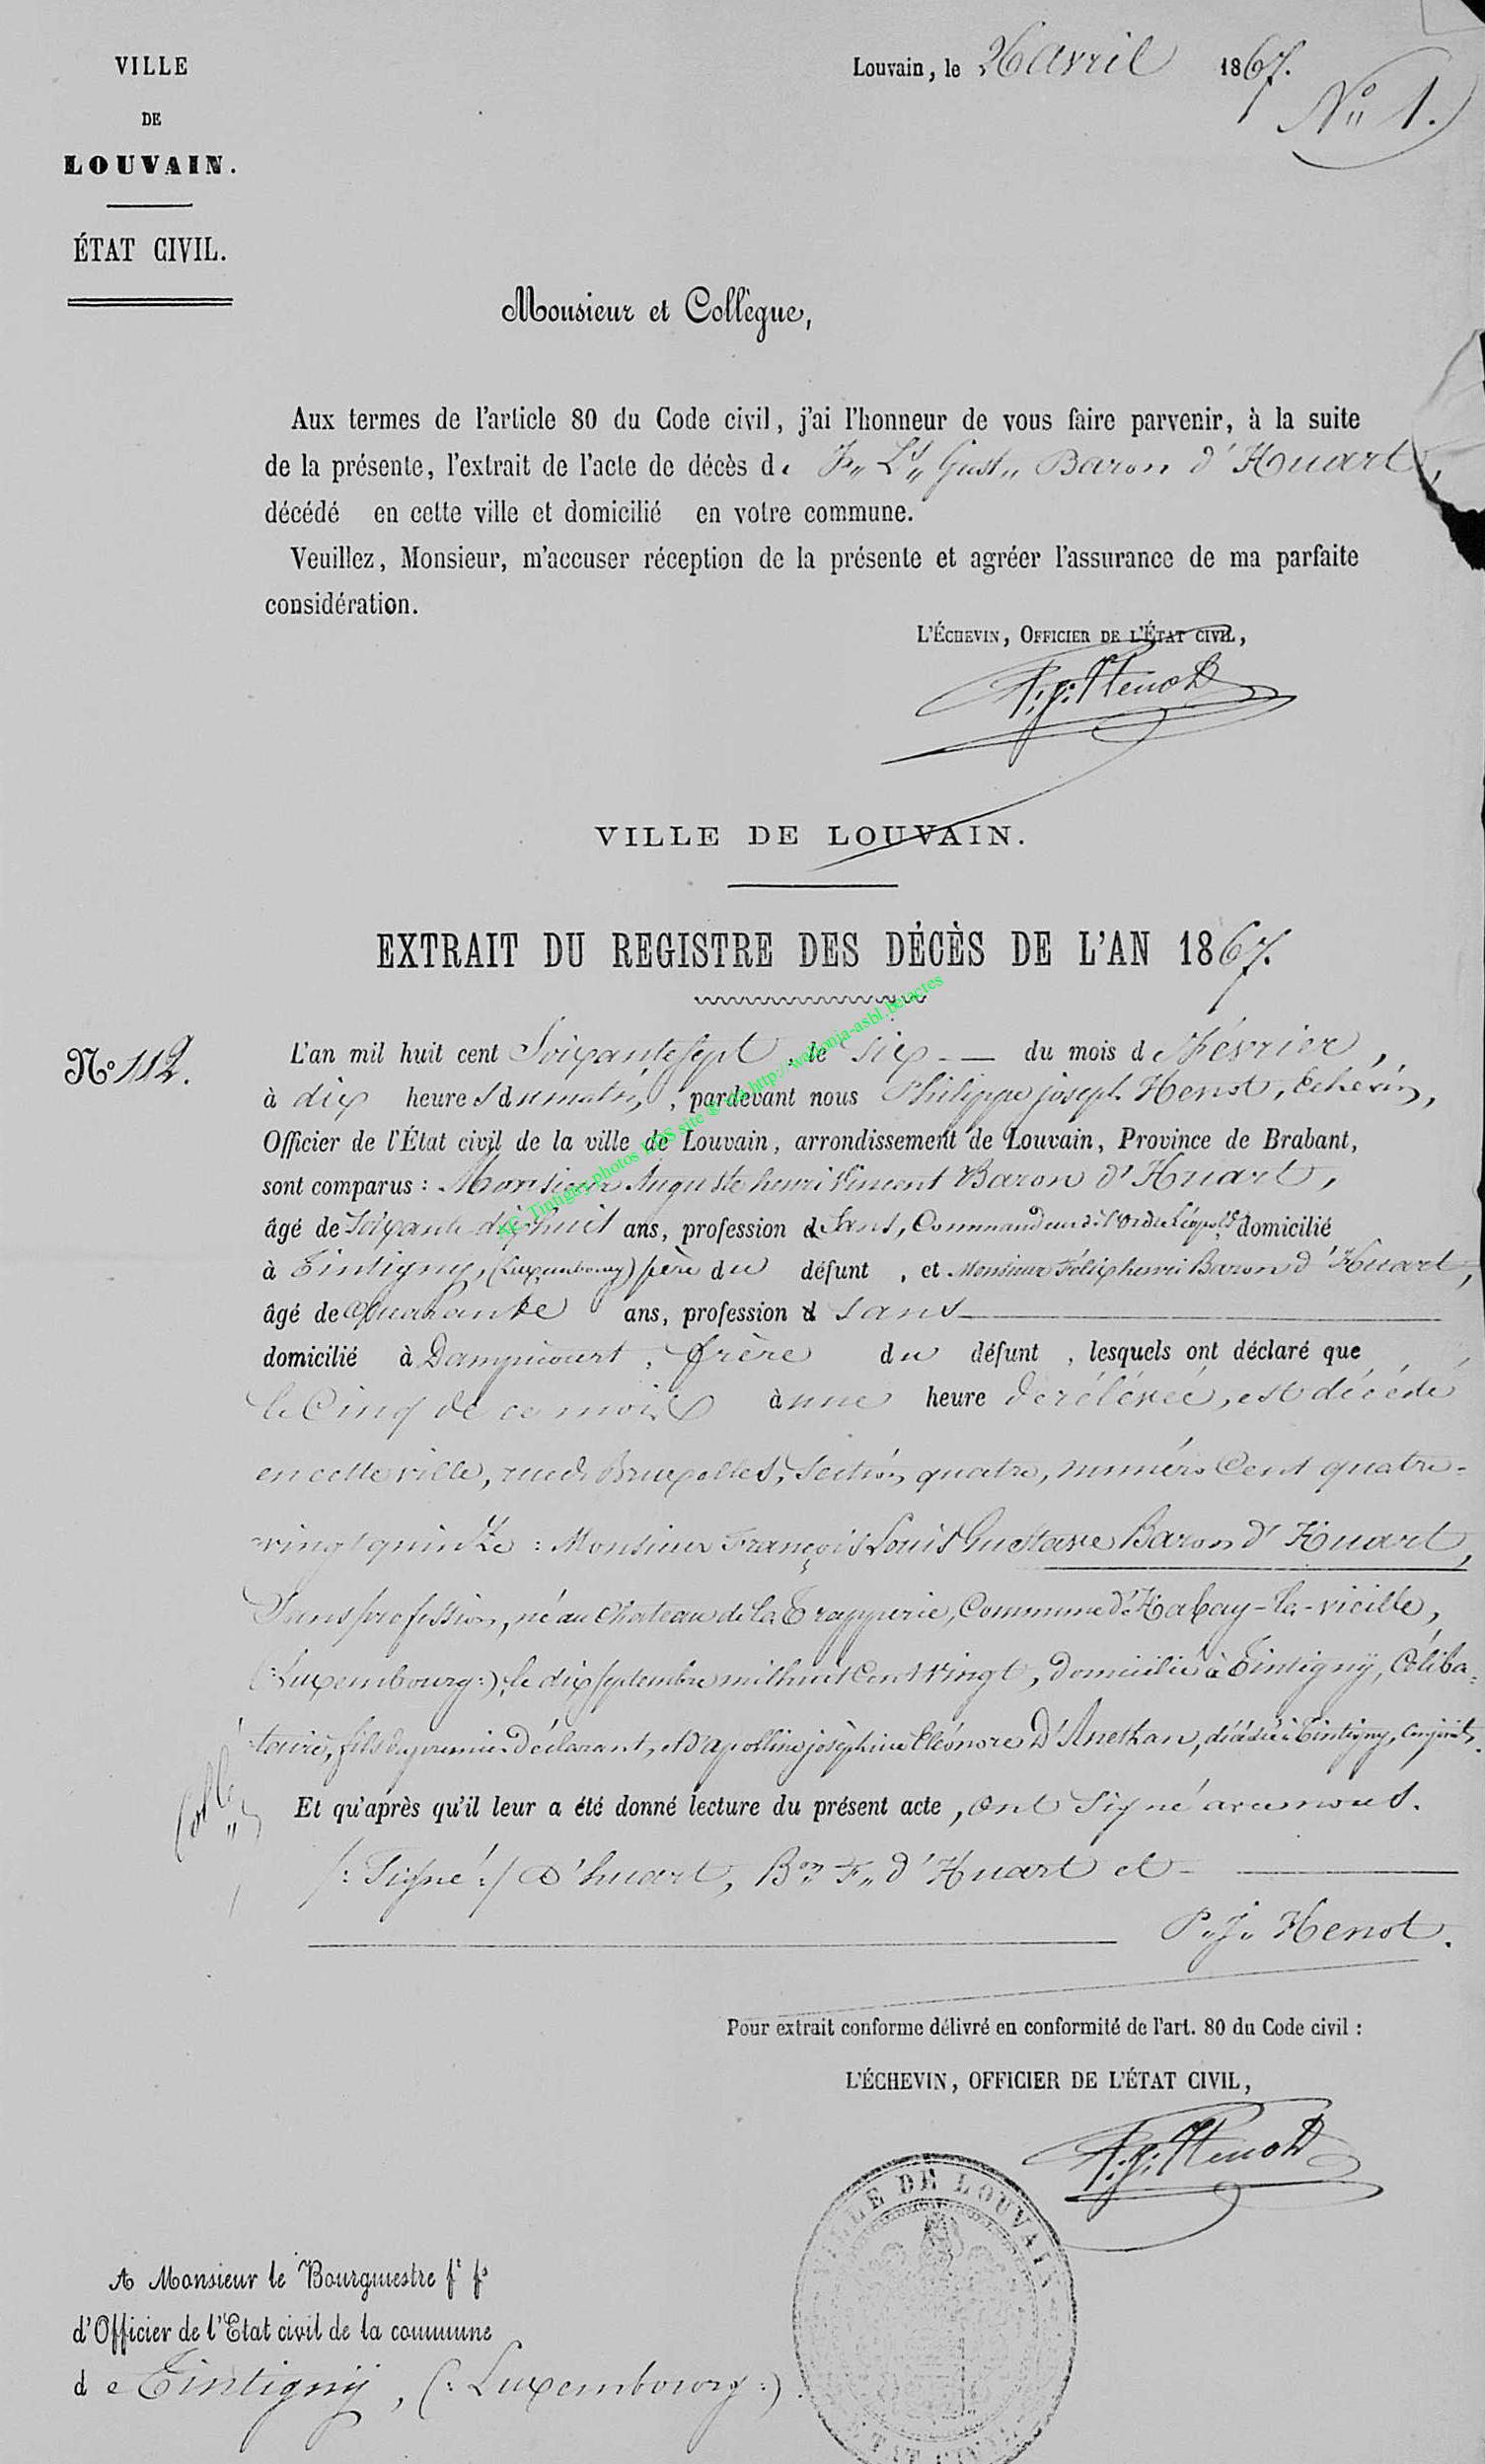 VILLE
DE
LOUVAIN.
ÉTAT CIVIL.
Louvain, le 26 avril 1867.
No 1.
Monsieur et Collègue,
Aux termes de l'article 80 du Code civil, j'ai l'honneur de vous faire parvenir, à la suite
de la présente, l'extrait de l'acte de décès de F„ Ls„ Gust„ Baron d'Huart,
décédé en cette ville et domicilié en votre commune.
Veuillez, Monsieur, m'accuser réception de la présente et agréer l'assurance de ma parfaite
considération.
L'ÉCHEVIN, OFFICIER DE L'ÉTAT CIVIL,
P. J. Henot
VILLE DE LOUVAIN.
EXTRAIT DU REGISTRE DES DÉCÈS DE L'AN 1867.
No 112.
L'an mil huit cent Soixante sept, le six du mois de Février,
à dix heures du matin, pardevant nous Philippe joseph Henot, Echevin,
Officier de l'État civil de la ville de Louvain, arrondissement de Louvain, Province de Brabant,
sont comparus : Monsieur Auguste henri Vincent Baron d'Huart,
âgé de Soixante dix huit ans, profession d Sans, Commandeur de l'Ordre Léopold, domicilié
à Tintigny, (Luxembourg) père du défunt, et Monsieur Félix henri Baron d'Huart,
âgé de Quarante ans, profession d sans
domicilié à Dampicourt, frère du défunt, lesquels ont déclaré que
le Cinq de ce mois à une heure de rélévée, est décédé
en cette ville, rue de Bruxelles, Section quatre, numéro Cent quatre-
vingt quinze : Monsieur François Louis Gustave Baron d'Huart,
Sans profession, né au Chateau de la Trapperie, Commune d'Habay-la-vieille,
(:Luxembourg:), le dix septembre mil huit Cent vingt, Domicilié à Tintigny, Céliba-
taire, fils du premier Déclarant, et d'apolline joséphine Eléonore D'Anethan, décédée à Tintigny, Conjoints.
Collé
Et qu'après qu'il leur a été donné lecture du présent acte, ont signé avec nous.
/: Signé :/ D'huart, Bon F„ d'Huart et
P. J. Henot.
Pour extrait conforme délivré en conformité de l'art. 80 du Code civil :
L'ÉCHEVIN, OFFICIER DE L'ÉTAT CIVIL,
P. J. Henot
VILLE DE LOUVAIN
ETAT CIVIL
A Monsieur le Bourgmestre ft fs
d'Officier de l'Etat civil de la commune
de Tintigny, (: Luxembourg :)